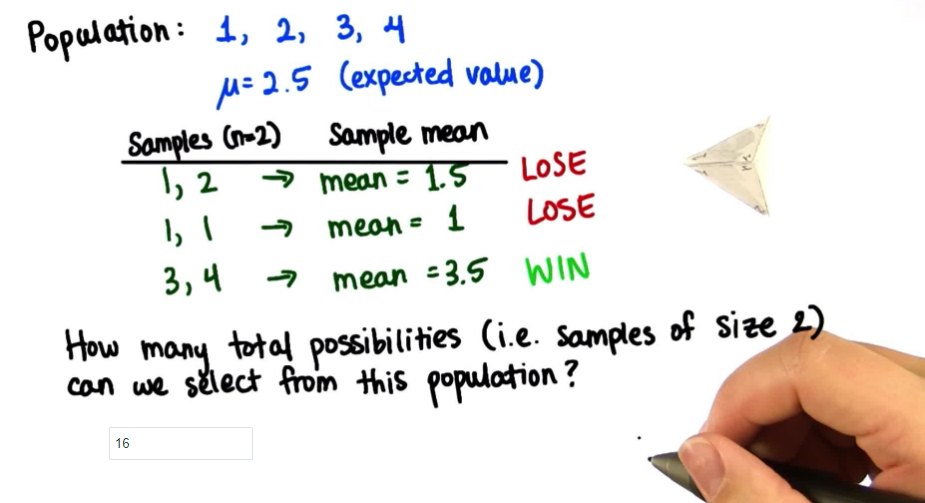 Population: 1, 2, 3, 4
µ= 2.5 (expected value)
Samples (n=2) Sample mean
1, 2 → mean = 1.5 LOSE
1, 1 → mean = 1 LOSE
3, 4 → mean = 3.5 WIN
How many total possibilities (i.e. samples of size 2)
can we select from this population?
16